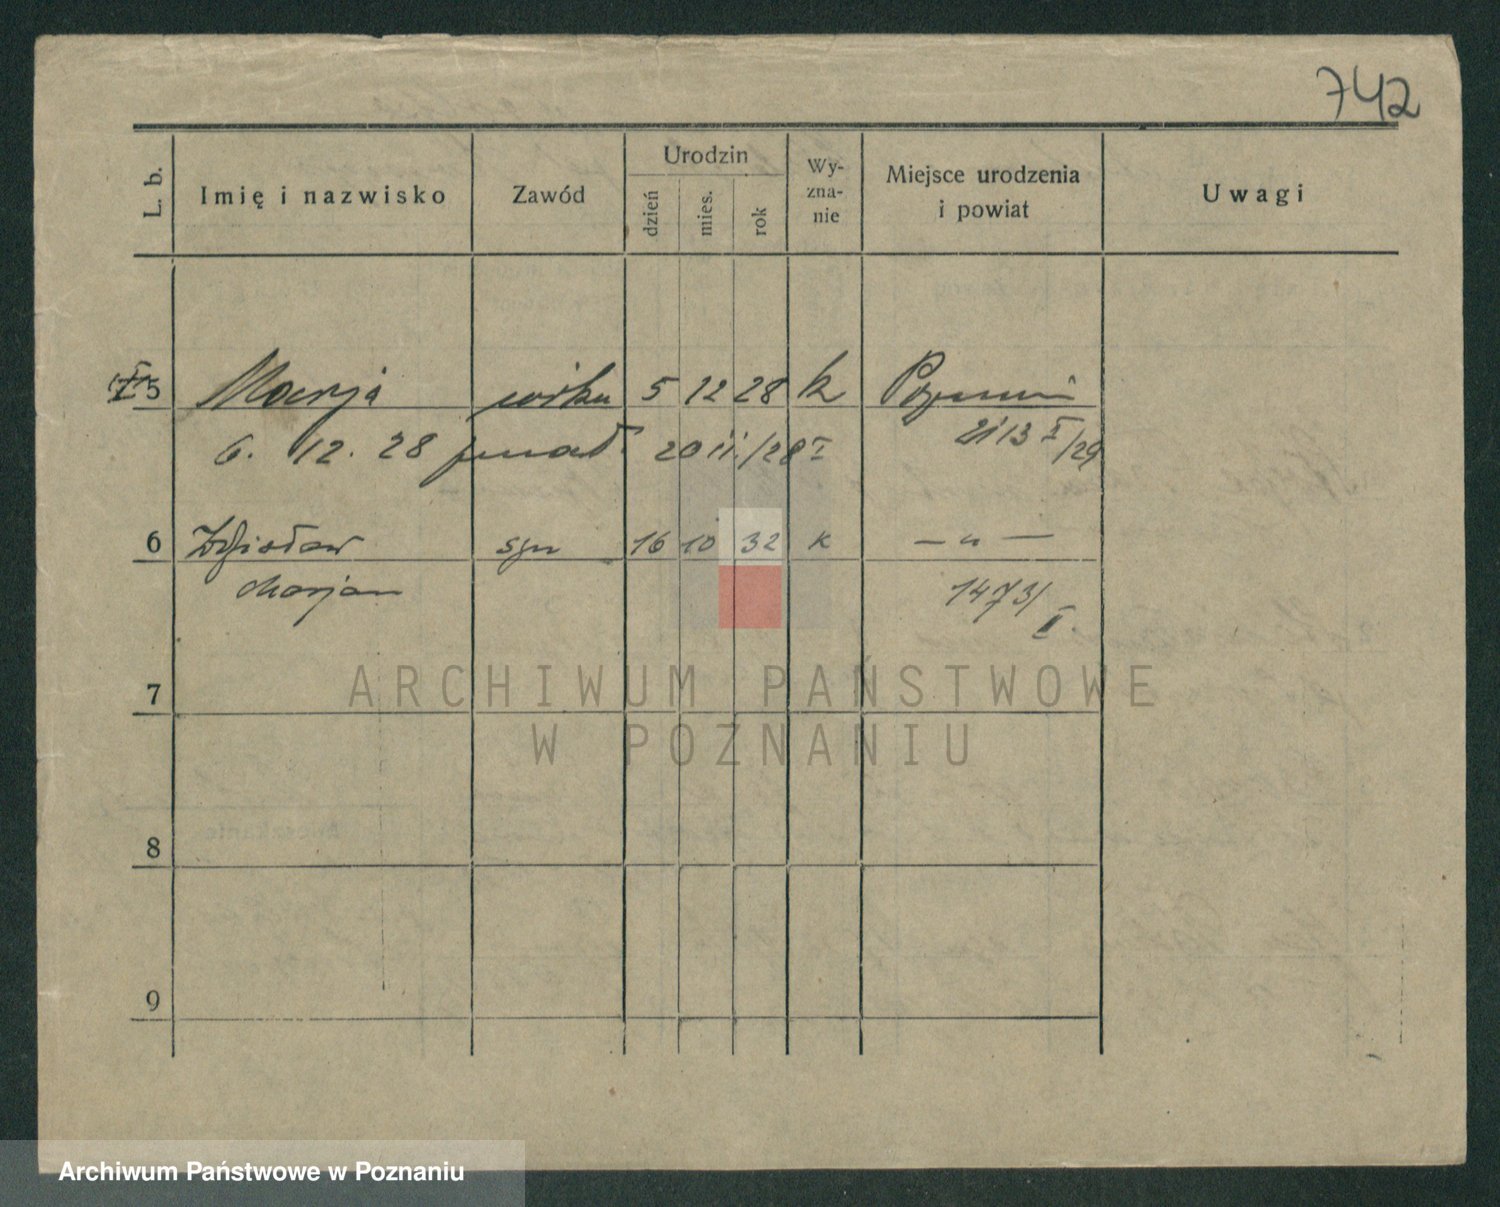 742
L. b. Imię i nazwisko Zawód Urodzin dzień mies. rok Wy-zna-nie Miejsce urodzenia i powiat Uwagi
5 Marja córka 5 12 28 k Poznań
6. 12. 28 20 11./28
6 Zdzisław syn 16 10 32 k — " —
Marjan 1473/II
7
8
9
ARCHIWUM PAŃSTWOWE
W POZNANIU
Archiwum Państwowe w Poznaniu